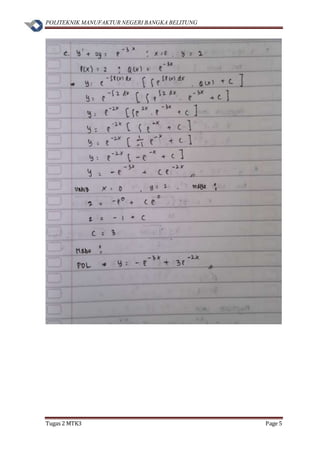 POLITEKNIK MANUFAKTUR NEGERI BANGKA BELITUNG
c. y' + 2y = e^-3x ; x=0 y = 2
P(x) = 2 ; Q(x) = e^-3x
* y = e^-∫P(x) dx [∫e^∫P(x) dx . Q(x) + C]
y = e^-∫2 dx [∫e^∫2 dx . e^-3x + C]
y = e^-2x [∫e^2x . e^-3x + C]
y = e^-2x [∫e^-x + C]
y = e^-2x [1/-1 e^-x + C]
y = e^-2x [-e^-x + C]
y = -e^-3x + C e^-2x
Untuk x = 0 , y = 2 , maka :
2 = -e^0 + C e^0
2 = -1 + C
C = 3
Maka :
PDL → y = -e^-3x + 3e^-2x
Tugas 2 MTK3 Page 5